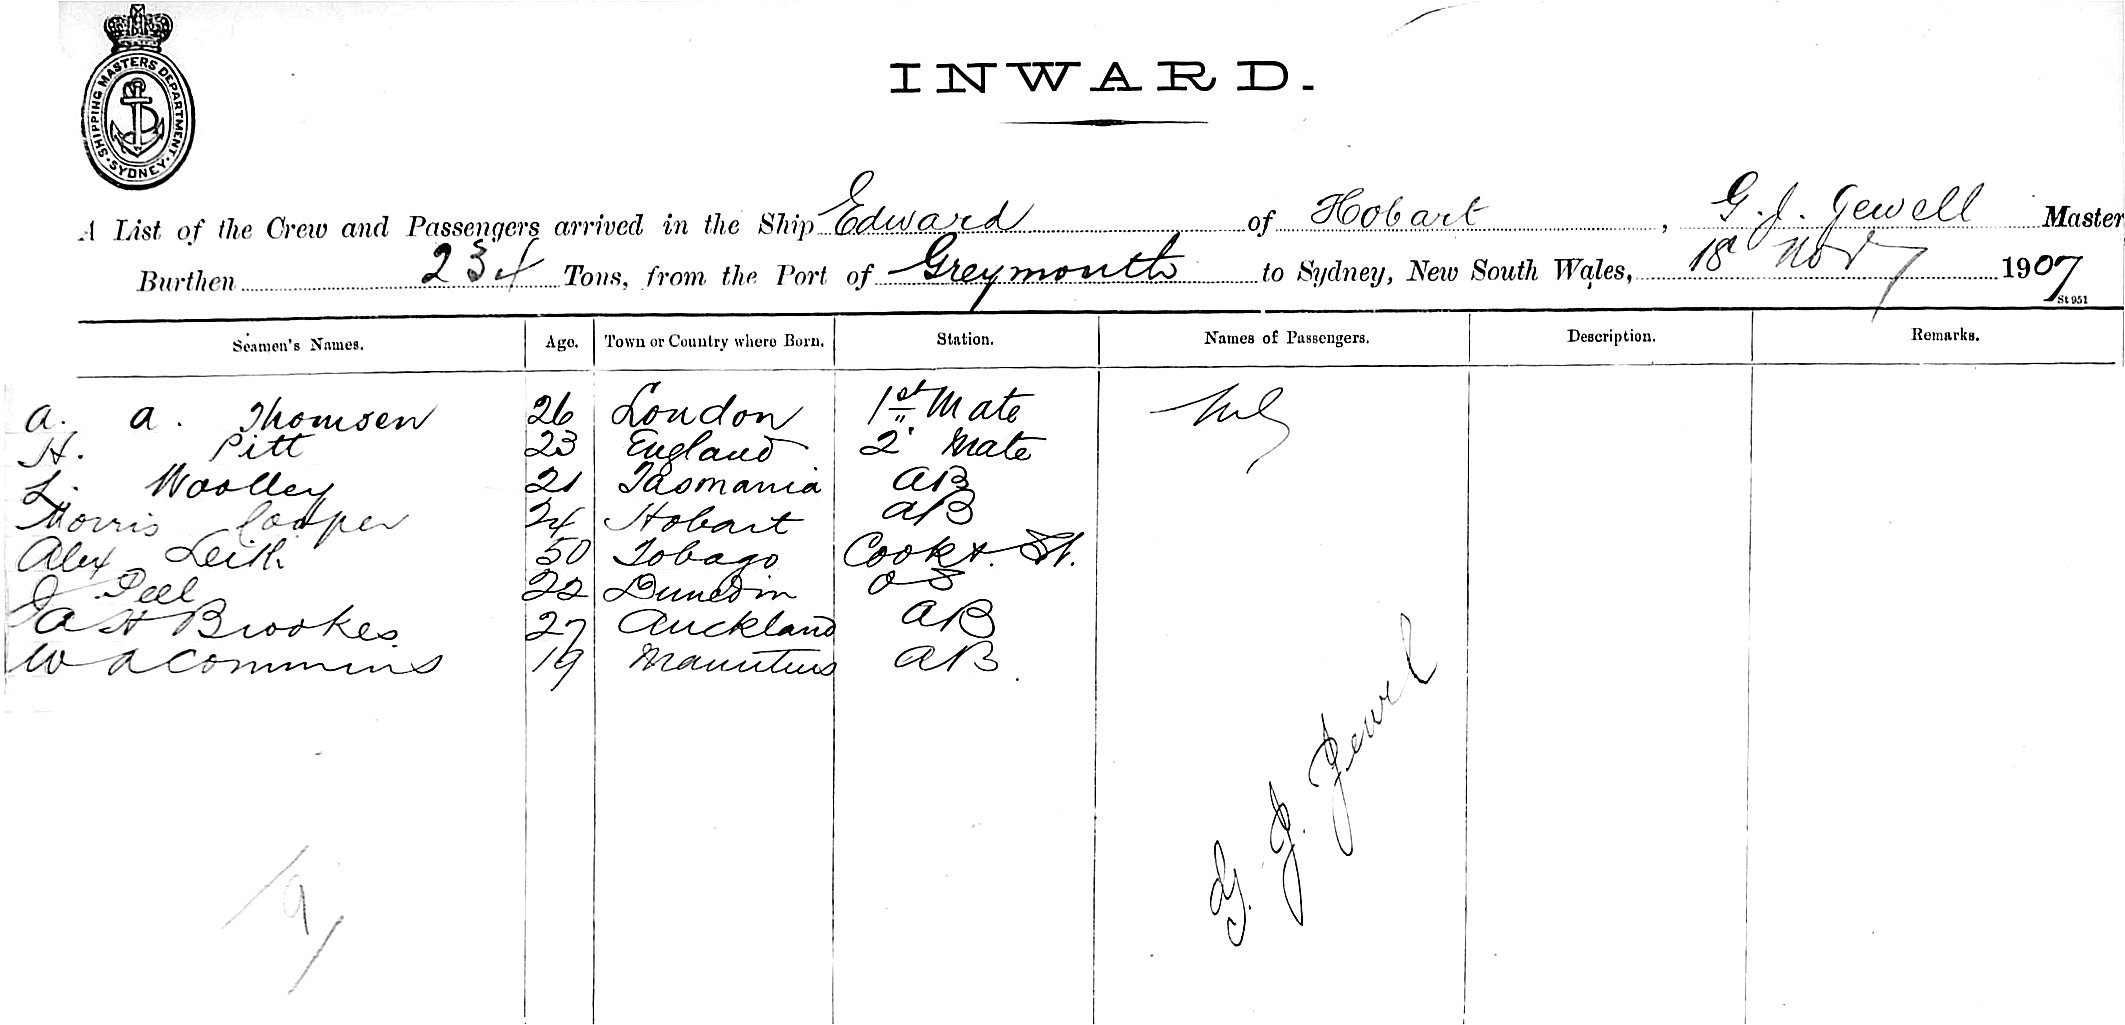 SHIPPING MASTERS DEPARTMENT. SYDNEY.
INWARD.
A List of the Crew and Passengers arrived in the Ship Edward of Hobart, G. J. Jewell Master
Burthen 234 Tons, from the Port of Greymouth to Sydney, New South Wales, 18 Nov 1907
St 951
Seamen's Names. Age. Town or Country where Born. Station. Names of Passengers. Description. Remarks.
A. A. Thomsen 26 London 1st Mate Nil
H. Pitt 23 England 2 Mate
L. Woolley 21 Tasmania AB
Morris Cooper 24 Hobart AB
Alex Leith 50 Tobago Cook & St.
J Peel 22 Dunedin OS
A H Brookes 27 Auckland AB
W A Commins 19 Mauritius AB
G. J. Jewel
9